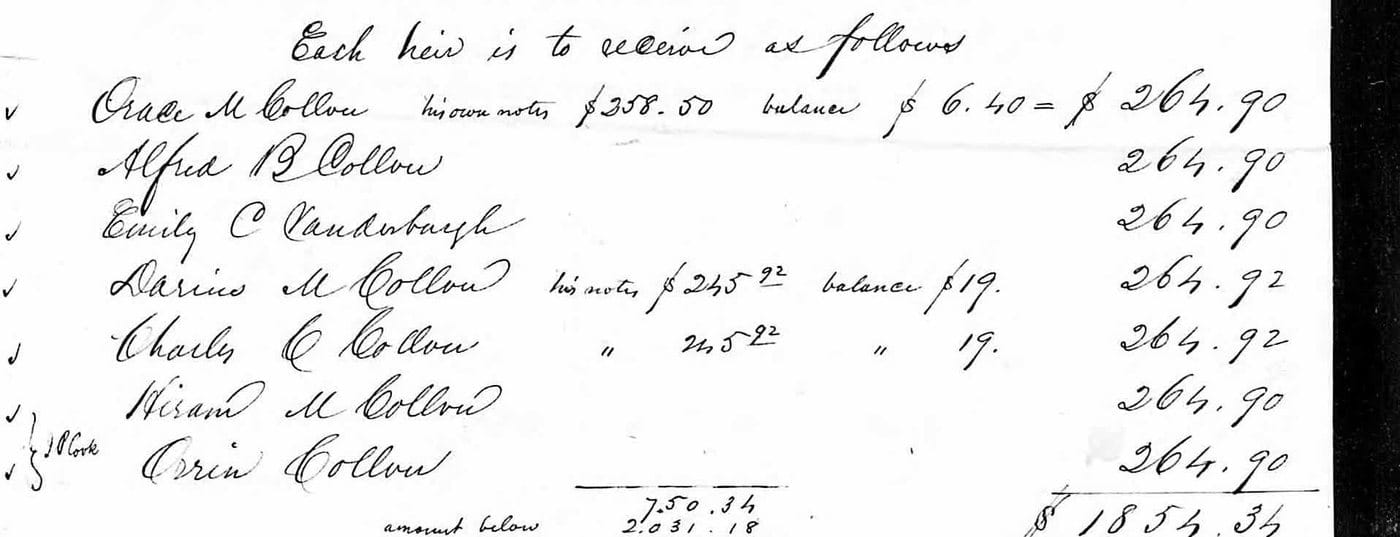 Each heir is to receive as follows
✓ Orace M Collou his own notes $258.50 balance $ 6.40 = $ 264.90
✓ Alfred B Collou 264.90
✓ Emily C Vanderburgh 264.90
✓ Darius M Collou his notes $245 92 balance $19. 264.92
✓ Charles C Collou " 245 92 " 19. 264.92
✓ Hiram M Collou 264.90
J P Cook
✓ Orrin Collou 264.90
750.34
amount below 2.031.18 $ 1854.34